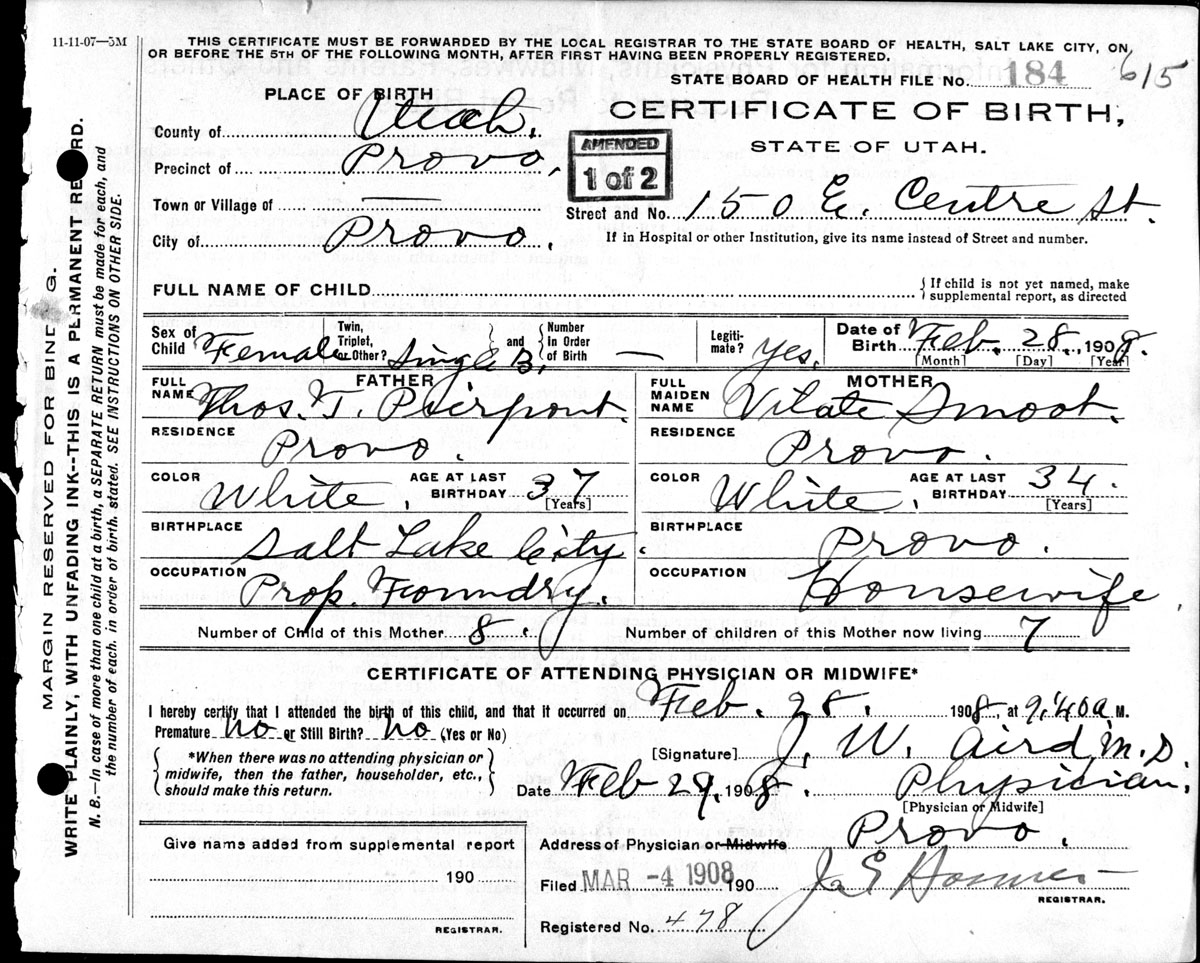 11-11-07—5M
THIS CERTIFICATE MUST BE FORWARDED BY THE LOCAL REGISTRAR TO THE STATE BOARD OF HEALTH, SALT LAKE CITY, ON
OR BEFORE THE 5TH OF THE FOLLOWING MONTH, AFTER FIRST HAVING BEEN PROPERLY REGISTERED.
STATE BOARD OF HEALTH FILE No. 184 615
PLACE OF BIRTH
CERTIFICATE OF BIRTH,
STATE OF UTAH.
County of Utah.
AMENDED
1 of 2
Precinct of Provo,
Town or Village of —
Street and No. 150 E. Centre St.
City of Provo.
If in Hospital or other Institution, give its name instead of Street and number.
FULL NAME OF CHILD
{If child is not yet named, make
supplemental report, as directed
Sex of Child Female
Twin, Triplet, or Other? Single B.
and
Number In Order of Birth —
Legitimate? Yes.
Date of Birth Feb. 28., 1908.
[Month] [Day] [Year]
FATHER
FULL NAME Thos. T. Pierpont.
RESIDENCE Provo.
COLOR White. AGE AT LAST BIRTHDAY 37 [Years]
BIRTHPLACE Salt Lake City.
OCCUPATION Prop. Foundry.
MOTHER
FULL MAIDEN NAME Vilate Smoot.
RESIDENCE Provo.
COLOR White. AGE AT LAST BIRTHDAY 34. [Years]
BIRTHPLACE Provo.
OCCUPATION Housewife.
Number of Child of this Mother 8.
Number of children of this Mother now living 7
CERTIFICATE OF ATTENDING PHYSICIAN OR MIDWIFE*
I hereby certify that I attended the birth of this child, and that it occurred on Feb. 28. 1908, at 9:40 a. M.
Premature No or Still Birth? No (Yes or No)
*When there was no attending physician or
midwife, then the father, householder, etc.,
should make this return.
[Signature] J. W. Aird, M.D.
Date Feb 29, 1908. Physician.
[Physician or Midwife]
Address of Physician or Midwife Provo.
Give name added from supplemental report
190
REGISTRAR.
Filed MAR -4 1908 190
REGISTRAR.
Registered No. 478
MARGIN RESERVED FOR BIND G.
WRITE PLAINLY, WITH UNFADING INK--THIS IS A PERMANENT RE RD.
N. B.—In case of more than one child at a birth, a SEPARATE RETURN must be made for each, and
the number of each, in order of birth, stated. SEE INSTRUCTIONS ON OTHER SIDE.